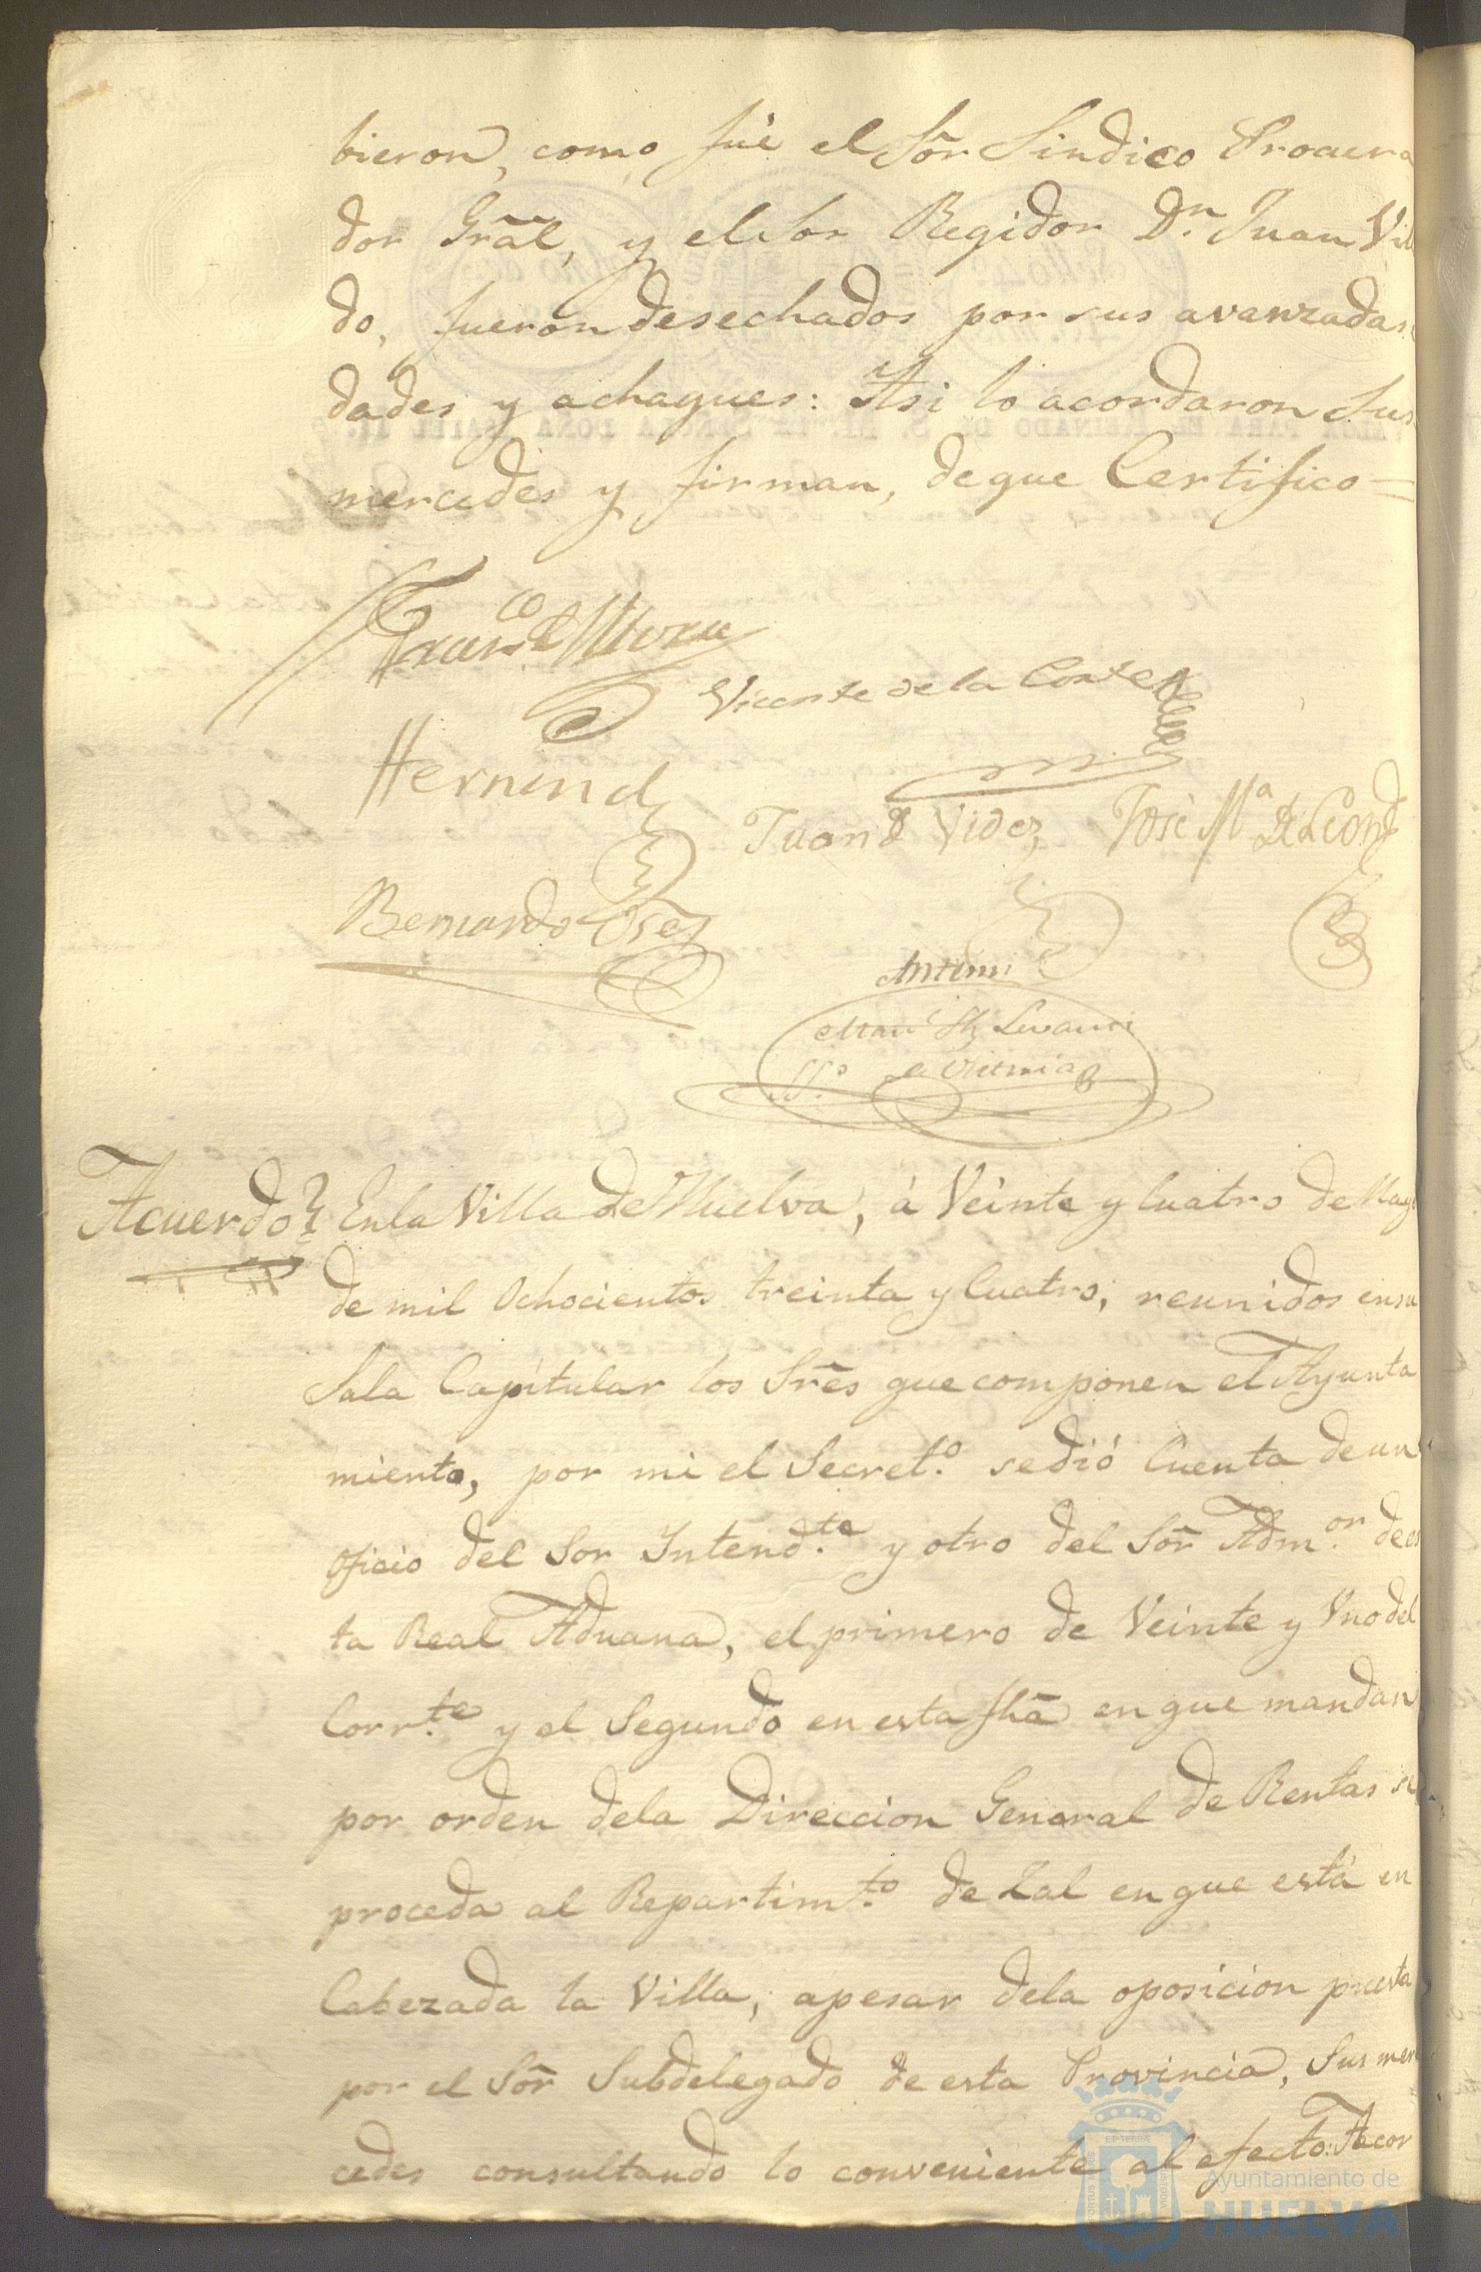 bieron, como fué el Sõr Sindico Procura
dor Grãl, y el Sor Regidor Dn. Juan Vi
do, fueron desechados por sus avanzadas
dades y achaques: Asi lo acordaron Sus
mercedes y firman, deque Certifico =
Franco. de Mora
Vicente de la Corte
Hernand
Juan de Videz José Ma. de Leon
Bernardo
Antemi
SSo.
Acuerdo Enla Villa de Huelva, á Veinte y Cuatro de Mayo
de mil Ochocientos treinta y Cuatro, reunidos ensu
Sala Capitular los Sres que componen el Ayunta
miento, por mi el Secreto. sedió Cuenta de un
oficio del Sor Intendte. y otro del Sõr Admor. de es
ta Real Aduana, el primero de Veinte y Uno del
Corrte. y el Segundo en esta fhã en que mandan
por orden dela Direccion General de Rentas se
proceda al Repartimto. de Zal en que está en
Cabezada la Villa, apesar dela oposicion puesta
por el Sõr Subdelegado de esta Provincia, Sus mer
cedes consultando lo conveniente al efecto: Acor
Ayuntamiento de
HUELVA